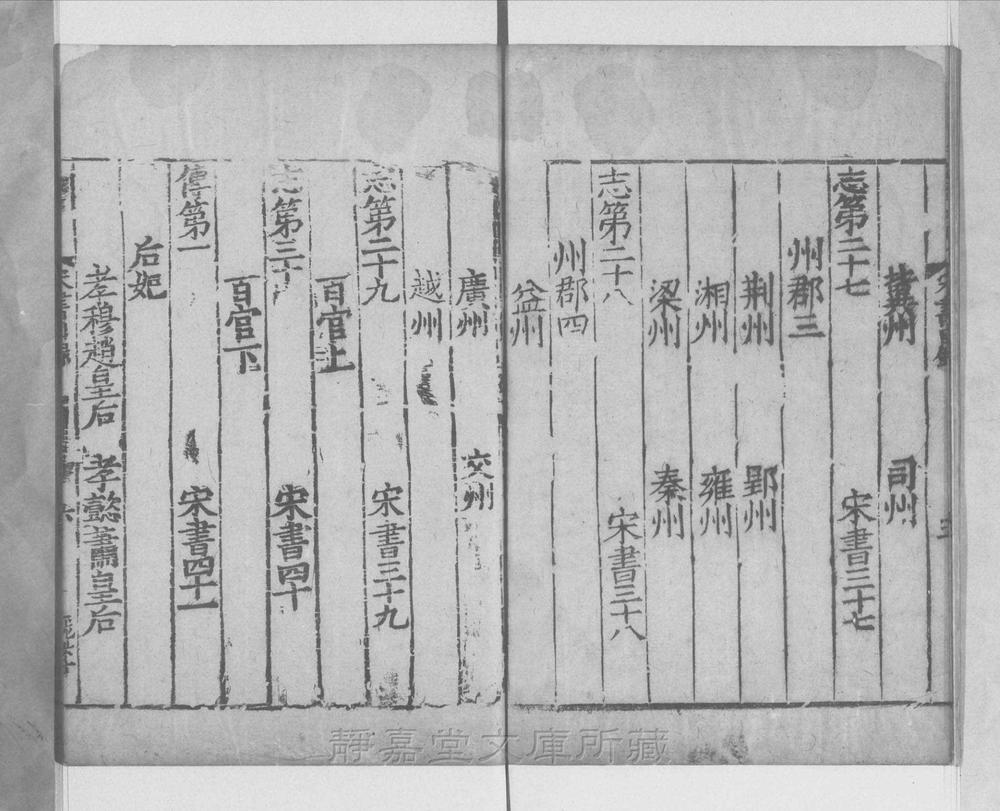 冀州 司州
志第二十七 宋書三十七
州郡三
荆州 郢州
湘州 雍州
梁州 秦州
志第二十八 宋書三十八
州郡四
益州
廣州 交州
越州
志第二十九 宋書三十九
百官上
志第三十 宋書四十
百官下
傳第一 宋書四十一
后妃
孝穆趙皇后 孝懿蕭皇后
靜嘉堂文庫所藏